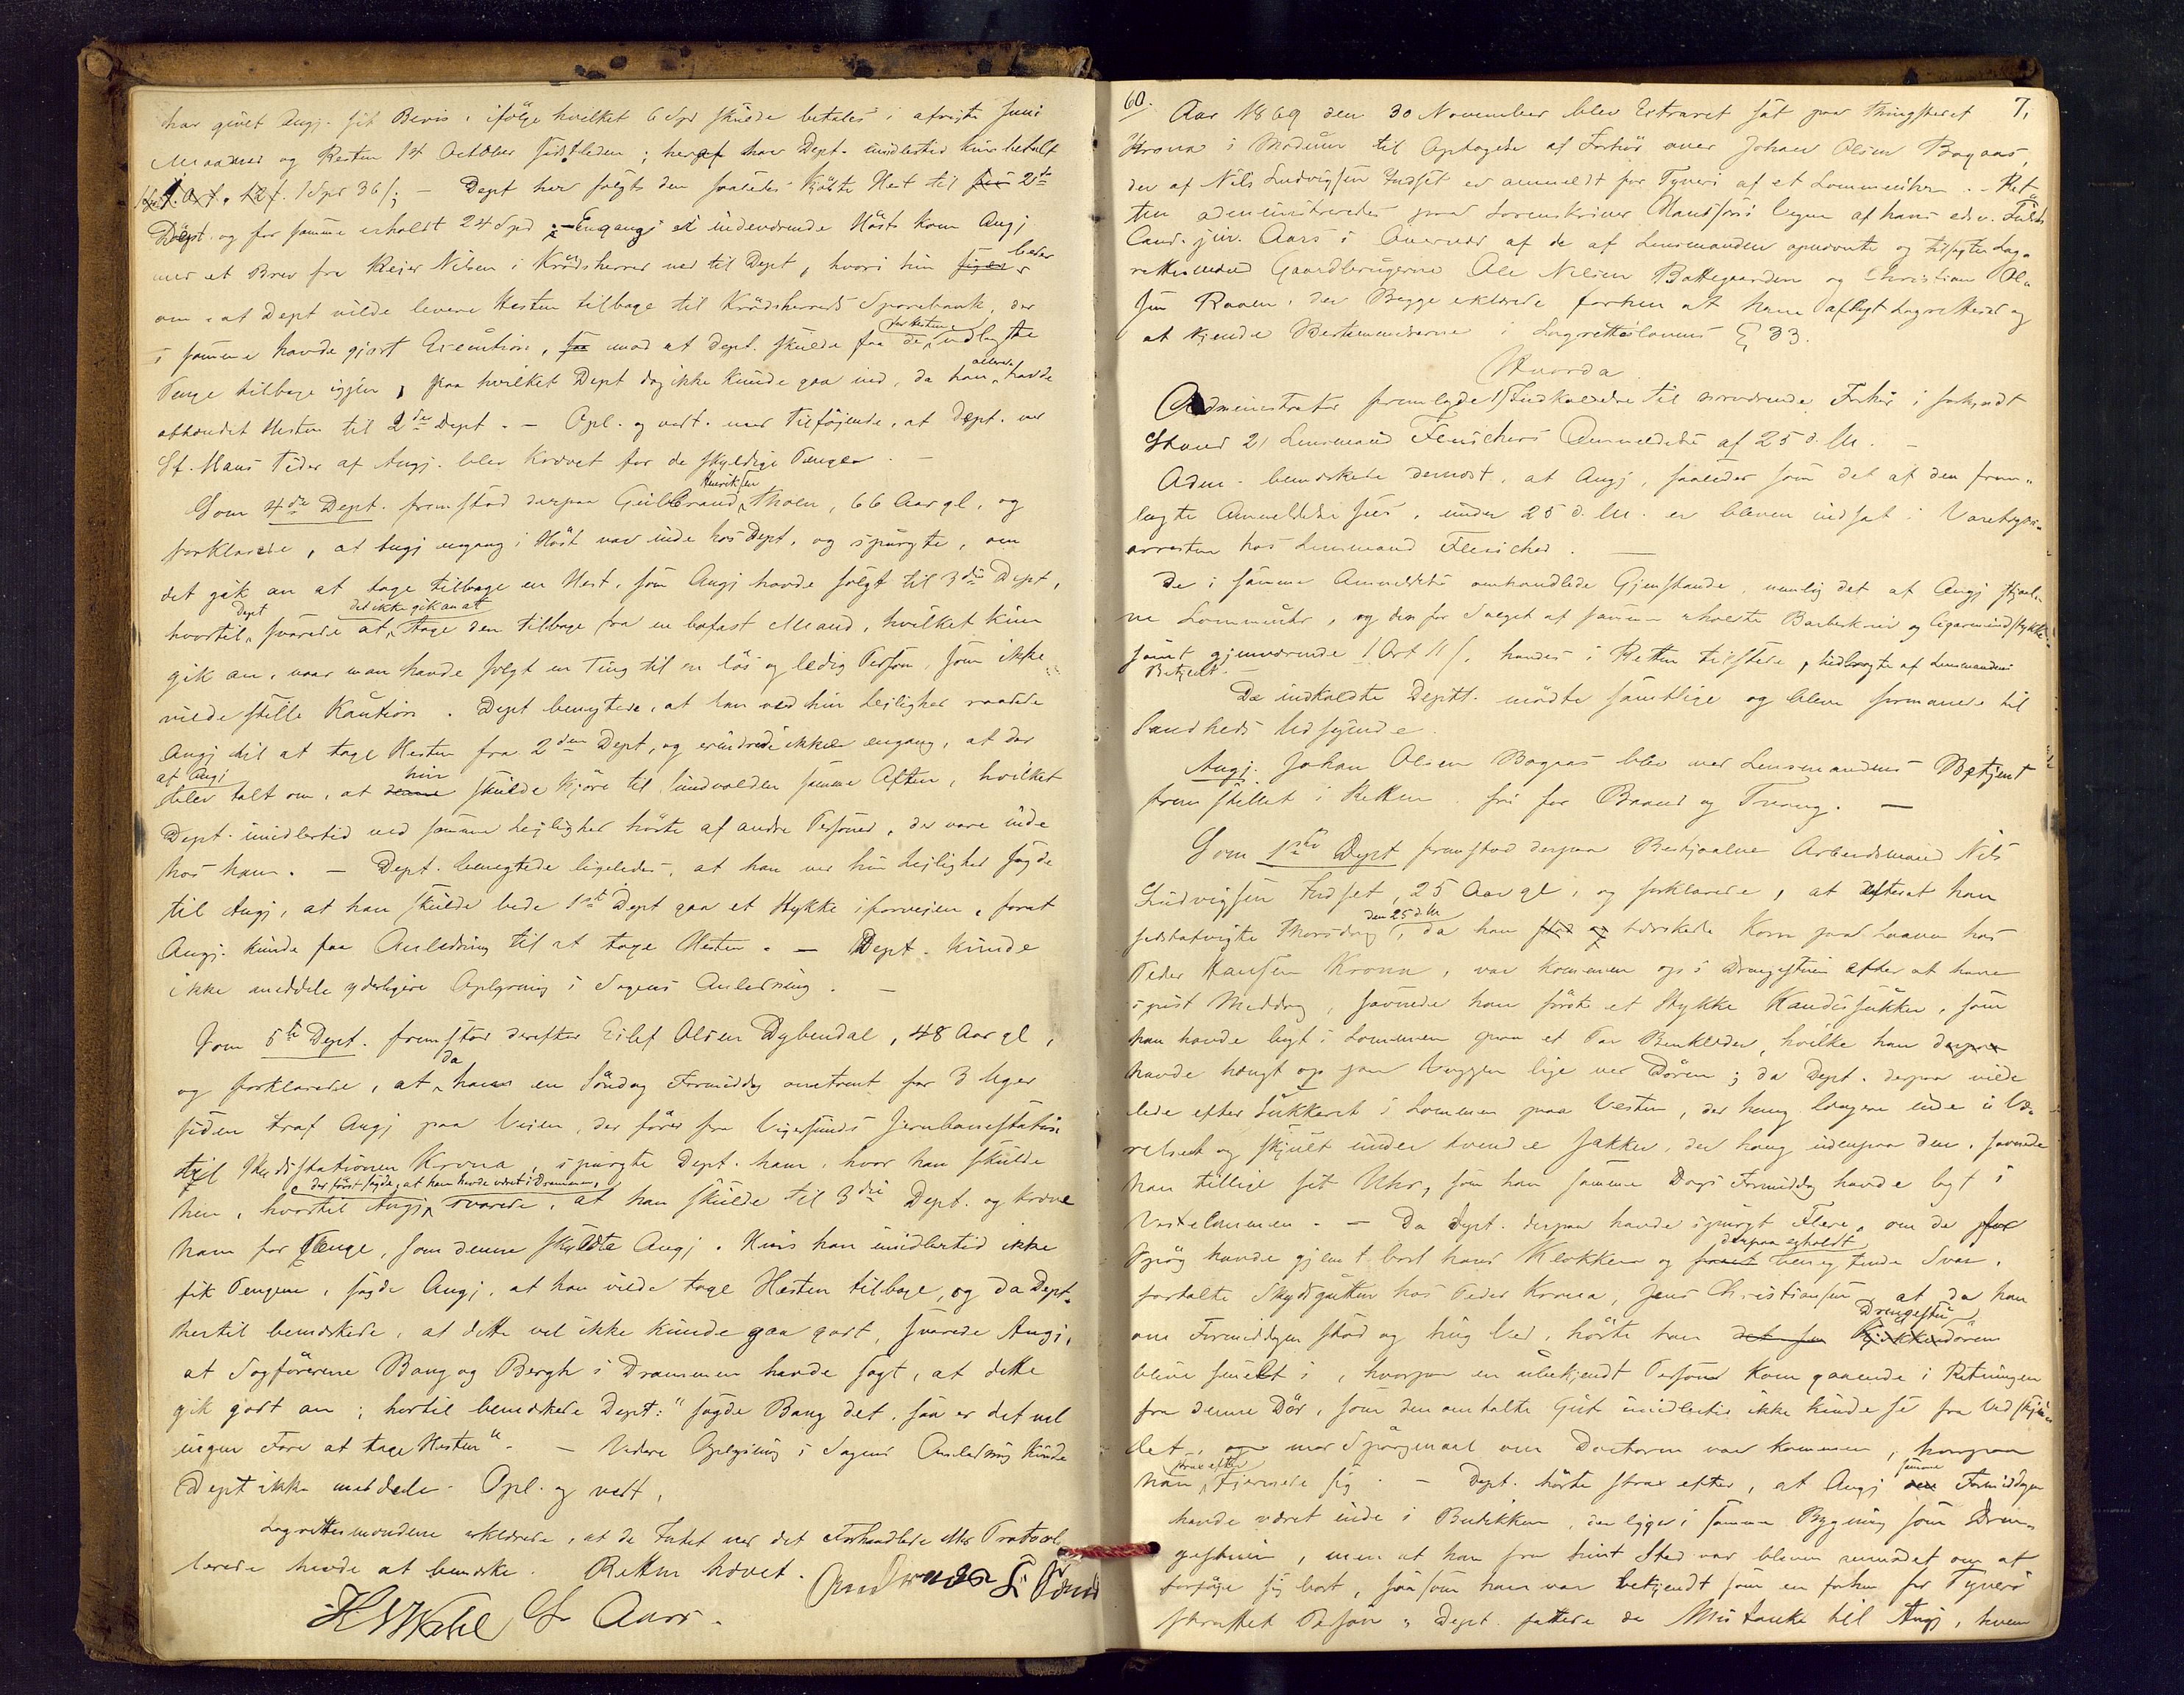 har givet Angj. sit Bevis, ifölge hvilket 6 Spd skulde betales i afvigte Juni
Maaned og Resten 14 October sidstleden; heraf har Dept. imidlertid kun betalt
1 Spd 36 s; — Dept har solgt den saaledes kjöbte Hest til 2de
Dept. og for samme erholdt 24 Spd. — Engang i indeværende Höst kom Angj
med et Brev fra Reier Nilsen i Krödsherred ned til Dept, hvori hin beder
om, at Dept vilde levere Hesten tilbage til Krödsherreds Sparebank, der
i samme havde gjort Execution, mod at Dept. skulde faa de for Hesten udlagte
Penge tilbage igjen, paa hvilket Dept dog ikke kunde gaa ind, da han allerede havde
afhændet Hesten til 2den Dept. — Opl. og vedt. med Tilföjende, at Dept. ved
St. Hans Tider af Angj. blev krævet for de skyldige Penge. —
Som 4de Dept. fremstod derpaa Gulbrand Henriksen Moen, 66 Aar gl, og
forklarede, at Angj engang i Höst var inde hos Dept, og spurgte, om
det gik an at tage tilbage en Hest, som Angj havde solgt til 3die Dept,
hvortil Dept svarede at det ikke gik an at tage den tilbage fra en bofast Mand, hvilket kun
gik an, naar man havde solgt en Ting til en lös og ledig Person, som ikke
vilde stille Kaution. Dept benegtede, at han ved hin Leilighed raadede
Angj til at tage Hesten fra 2den Dept, og erindrede ikke engang, at der
af Angj blev talt om, at hin skulde kjöre til Sundvolden samme Aften, hvilket
Dept. imidlertid ved samme Leilighed hörte af andre Personer, der vare inde
hos ham. — Dept. benegtede ligeledes, at han ved hin Leilighed sagde
til Angj, at han skulde bede 1ste Dept gaa et Stykke iforveien, forat
Angj. kunde faa Anledning til at tage Hesten. — Dept. kunde
ikke meddele yderligere Oplysning i Sagens Anledning. —
Som 5te Dept. fremstod derefter Eilef Olsen Dybendal, 48 Aar gl,
og forklarede, at da han en Söndag Formiddag omtrent for 3 Uger
siden traf Angj paa Veien, der förer fra Vigersunds Jernbanestation
til Skydsstationen Krona, spurgte Dept. ham, hvor han skulde
hen, hvortil Angj, der först sagde, at han havde været i Drammen, svarede, at han skulde til 3die Dept. og kræve
ham for Penge, som denne skyldte Angj. Hvis han imidlertid ikke
fik Pengene, sagde Angj, at han vilde tage Hesten tilbage, og da Dept.
hertil bemærkede, at dette vel ikke kunde gaa godt, svarede Angj,
at Sagförerne Bang og Bergh i Drammen havde sagt, at dette
gik godt an; hertil bemærkede Dept: "sagde Bang det, saa er det vel
ingen Fare at tage Hesten". — Videre Oplysning i Sagens Anledning kunde
Dept ikke meddele. Opl. og vedt.
Lagrettesmændene erklærede, at de Intet ved det Forhandlede eller Protocol-
lerede havde at bemærke. Retten hævet.
Aars.
60. Aar 1869 den 30 November blev Extraret sat paa Thingstedet 7.
Krona i Modum til Optagelse af Forhör over Johan Olsen Bagaas,
der af Nils Ludvigsen Indset er anmeldt for Tyveri af et Lommeuhr. — Ret-
ten administreredes paa Sorenskriver Vegne af hans edsv. Fuldm.
Cand. jur. Aars i Overvær af de af Lensmanden opnævnte og tilsagte Lag-
rettesmænd Gaardbrugerne Ole Nilsen Bottegaarden og Christian Ol-
sen Raaen, der Begge erklærede forhen at have aflagt Lagretteséd og
at kjende Bestemmelserne i Lagretteslovens § 33.
Hvorda
Administrator fremlagde 1) Indkaldelse til nærværende Forhör i forkyndt
Stand 2) Lensmand Fleischers Anmeldelse af 25 d. M. —
Adm. bemærkede dernæst, at Angj, saaledes som det af den frem-
lagte Anmeldelse sees, under 25 d. M. er bleven indsat i Varetægts-
arresten hos Lensmand Fleischer. —
De i samme Anmeldelse omhandlede Gjenstande, nemlig det af Angj stjaal-
ne Lommeuhr, og den for Salget af samme erholdte Barberkniv og Cigarmundstykke
samt gjenværende 1 Ort 11 s, havdes i Retten tilstede, medbragte af Lensmandens
Betjent.
De indkaldte Deptt. mödte samtlige og bleve formanede til
Sandheds Udsigende.
Angj. Johan Olsen Bagaas blev ved Lensmandens Betjent
fremstillet i Retten fri for Baand og Tvang. —
Som 1ste Dept fremstod derpaa Bestjaalne Arbeidsmand Nils
Ludvigsen Indset, 25 Aar gl, og forklarede, at efterat han
sidstafvigte Thorsdag den 25 d. M, da han tærskede Korn paa Laaven hos
Peder Hansen Krona, var kommen op i Drengestuen efter at have
spist Middag, savnede han förste et Stykke Kandissukker, som
han havde lagt i Lommen paa et Par Benklæder, hvilke han
havde hængt op paa Væggen lige ved Dören; da Dept. derpaa vilde
lede efter Sukkeret i Lommen paa Vesten, der hang længere inde i Væ-
relset og skjult under tvende Jakker, der hang udenpaa den, savnede
han tillige sit Uhr, som han samme Dags Formiddag havde lagt i
Vestelommen. — Da Dept. derpaa havde spurgt Flere, om de for
Spög havde gjemt bort hans Klokke og derpaa erholdt benegtende Svar,
fortalte Skydsgutten hos Peder Krona, Jens Christiansen, at da han
om Formiddagen stod og hug Ved, hörte han Drengestudören
blive smeldt i, hvorpaa en ubekjendt Person kom gaaende i Retningen
fra denne Dör, som den omtalte Gut imidlertid ikke kunde se fra Vedskju-
let, med Spörgsmaal om Doctoren var kommen, hvorpaa
han strax efter fjernede sig. — Dept. hörte strax efter, at Angj samme Formiddag
havde været inde i Butikken, der ligger i samme Bygning som Dren-
gestuen, men at han fra hint Sted var bleven anmodet om at
forföje sig bort, saasom han var bekjendt som en forhen for Tyveri
straffet Person. Dept. fattede da Mistanke til Angj, hvem